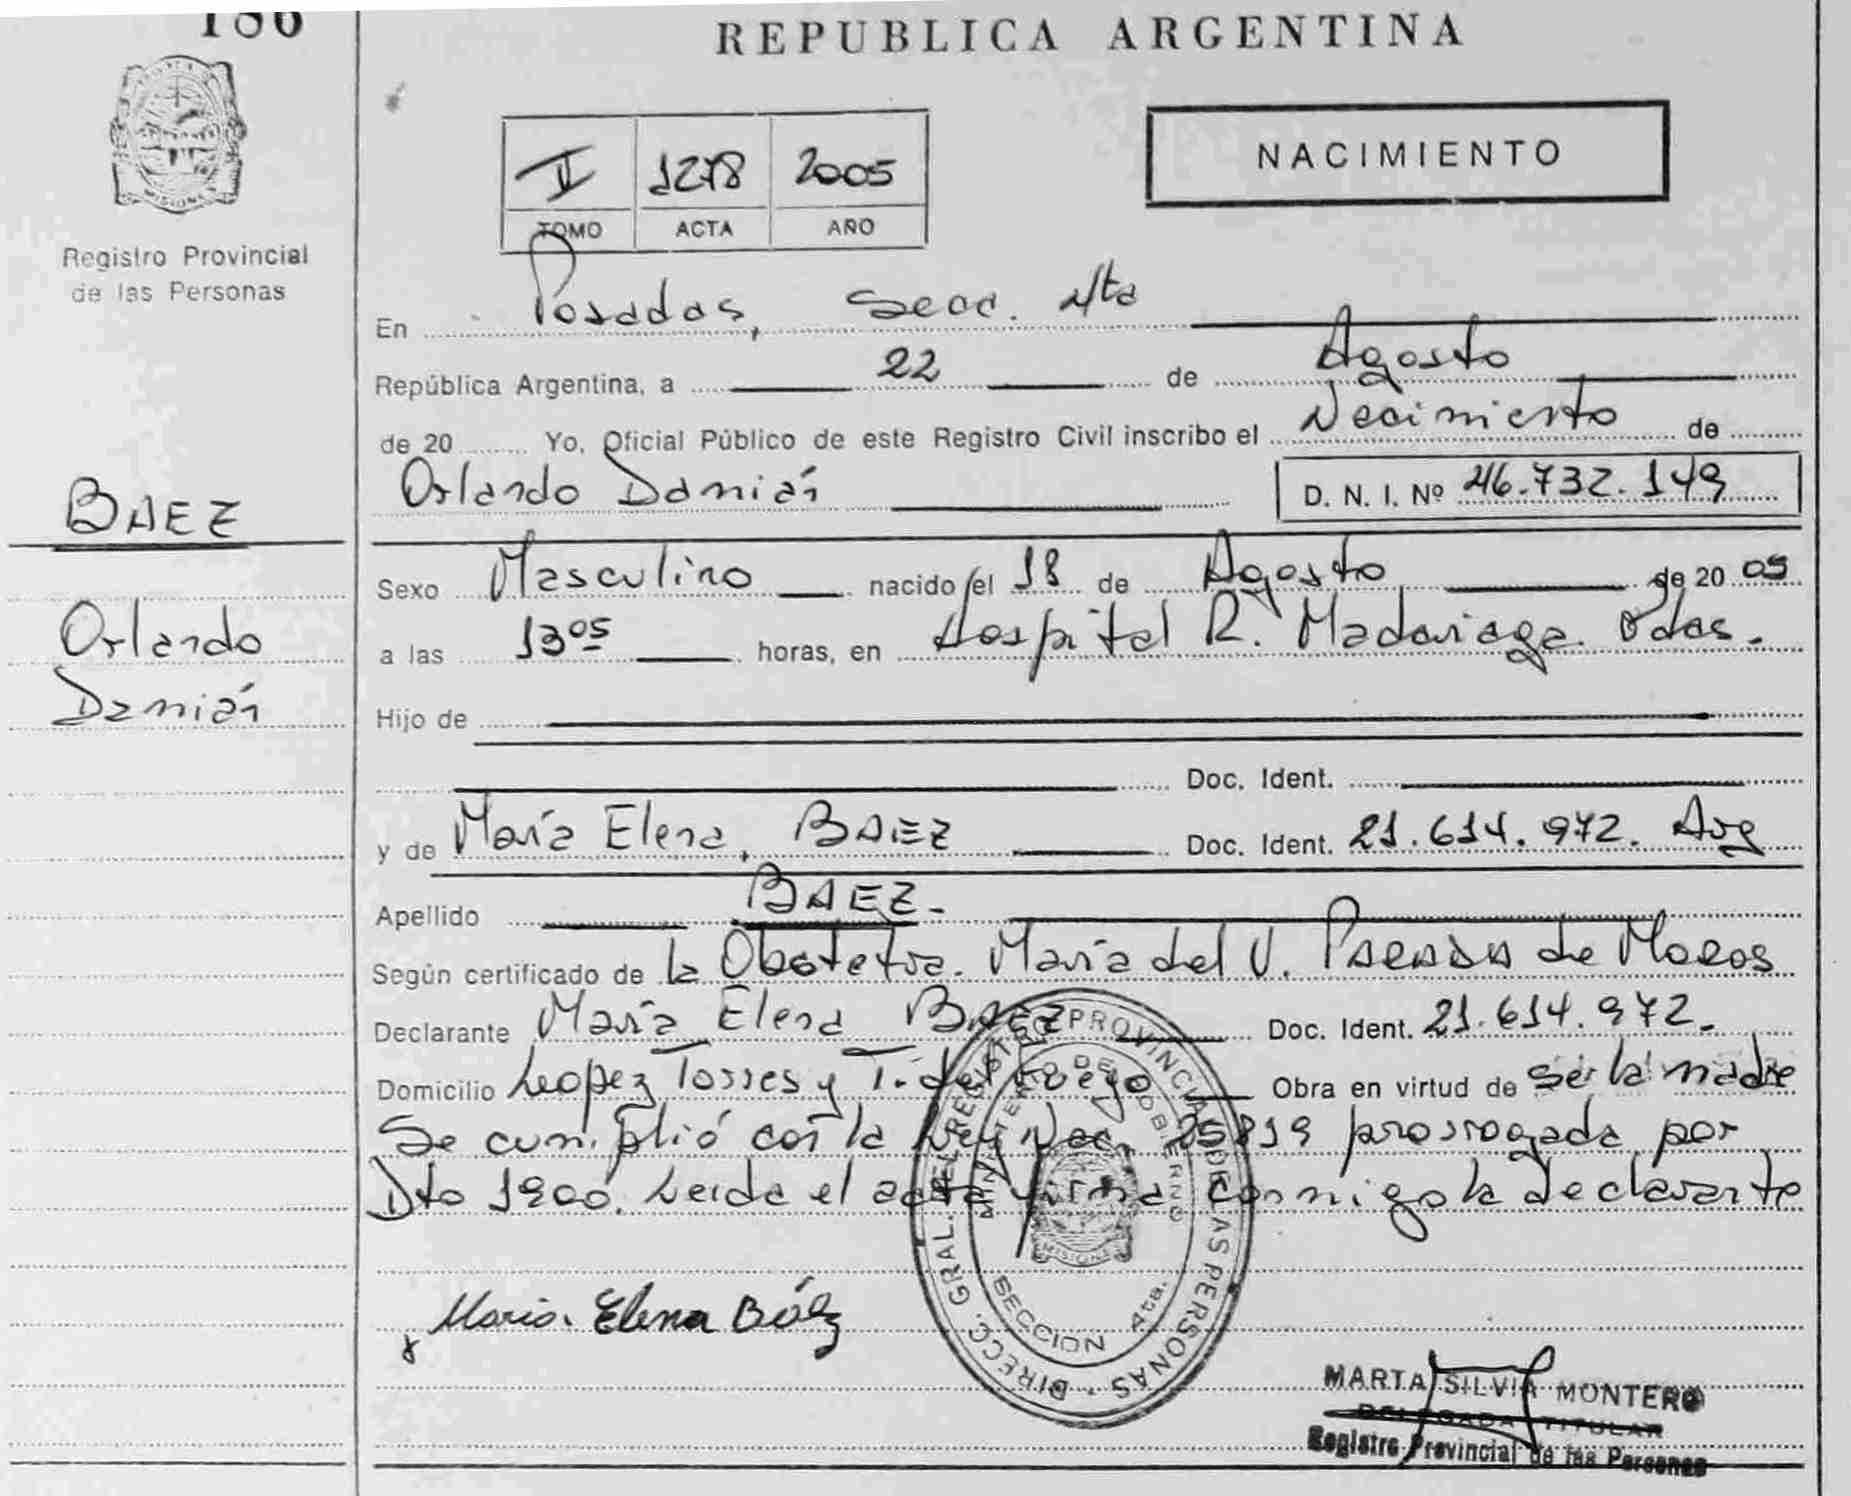 186
REPUBLICA ARGENTINA
MISIONES
Registro Provincial
de las Personas
II 1278 2005
TOMO ACTA AÑO
NACIMIENTO
En Posadas, Secc. 4ta
República Argentina, a 22 de Agosto
de 20 Yo, Oficial Público de este Registro Civil inscribo el Nacimiento de
Orlando Damián D. N. I. Nº 46.732.149
BAEZ
Orlando
Damián
Sexo Masculino nacido el 18 de Agosto de 20 05
a las 13 05 horas, en Hospital R. Madariaga. Pdas.
Hijo de
Doc. Ident.
y de María Elena, BAEZ Doc. Ident. 21.614.972. Arg
Apellido BAEZ.
Según certificado de la Obstetra. María del V. PARADA de MOROS
Declarante María Elena BAEZ Doc. Ident. 21.614.972.
Domicilio Lopez Torres y T. del Fuego Obra en virtud de ser la madre
Se cumplió con la Ley Nac. 25819 prorrogada por
Dto 1900. Leida el acta firma conmigo la declarante
DIRECC. GRAL. DEL REGISTRO PROVINCIAL DE LAS PERSONAS
MINISTERIO DE GOBIERNO
MISIONES
SECCION 4ta.
Maria Elena Báez
MARTA SILVIA MONTERO
DELEGADA TITULAR
Registro Provincial de las Personas